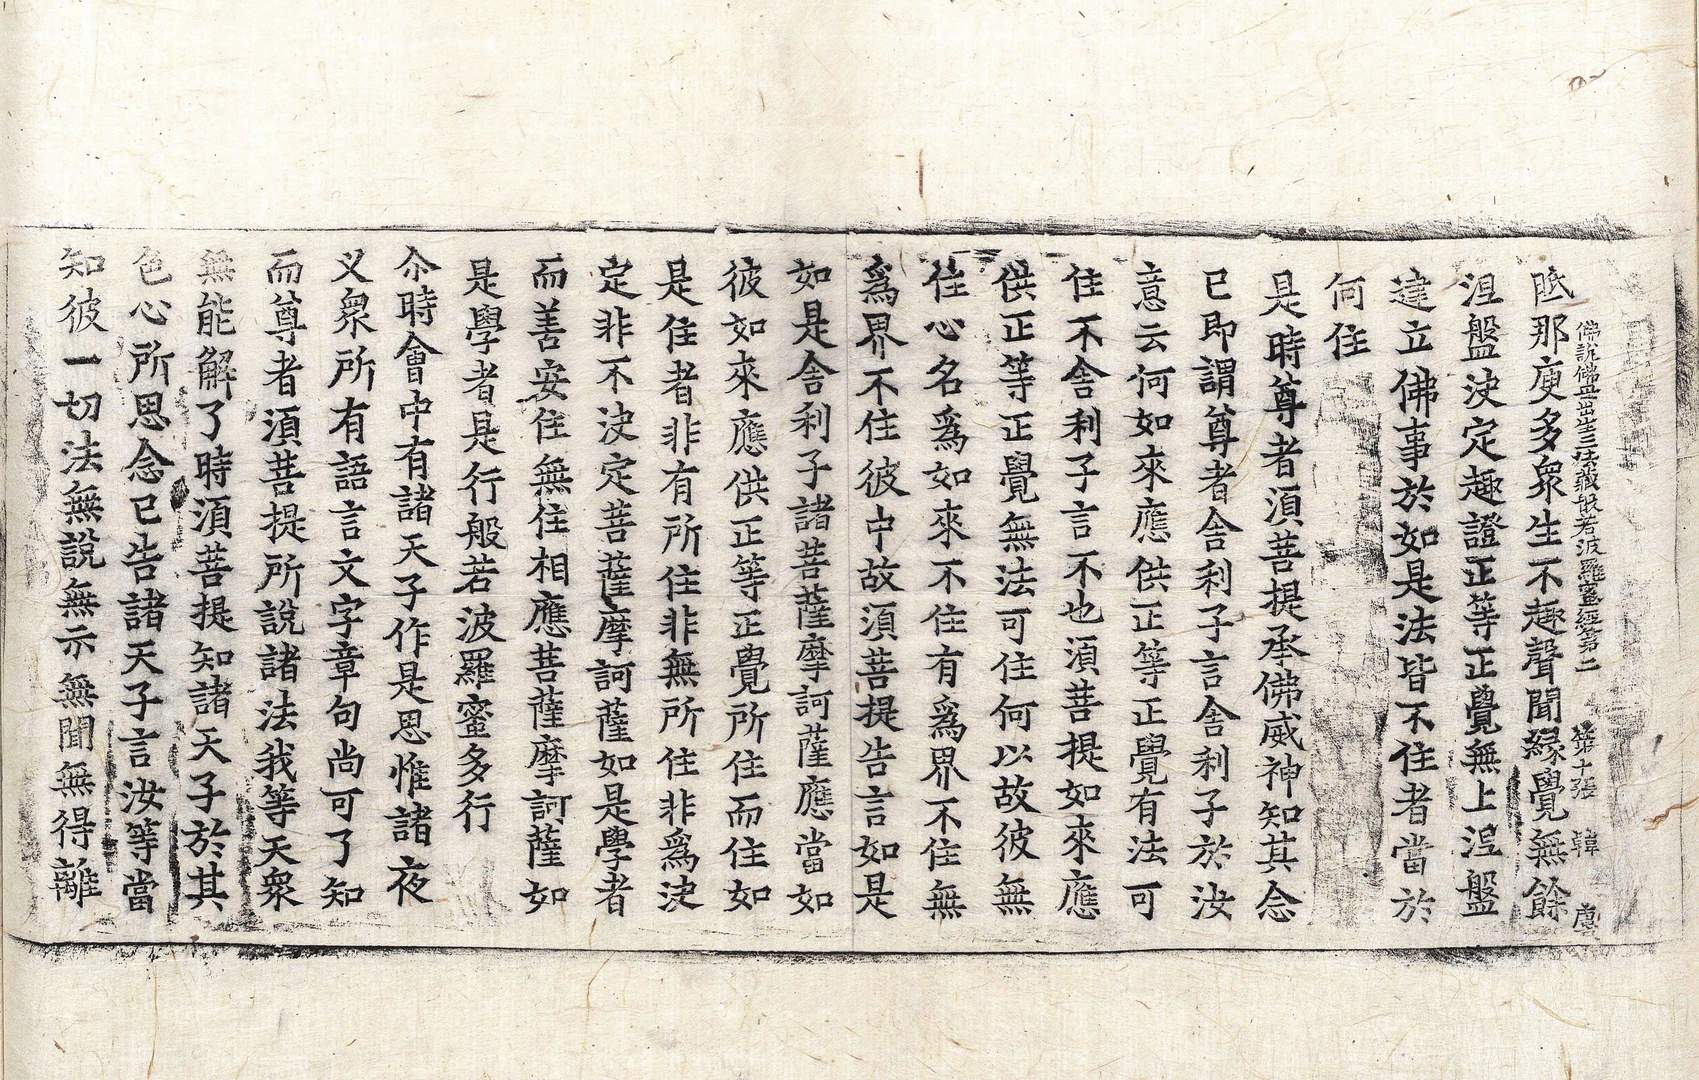 佛說佛母出生三法藏般若波羅蜜經第二 第十張 韓
胝那庾多衆生不趣聲聞緣覺無餘
涅盤決定趣證正等正覺無上涅盤
建立佛事於如是法皆不住者當於
何住
是時尊者須菩提承佛威神知其念
已即謂尊者舍利子言舍利子於汝
意云何如來應供正等正覺有法可
住不舍利子言不也須菩提如來應
供正等正覺無法可住何以故彼無
住心名爲如來不住有爲界不住無
爲界不住彼中故須菩提告言如是
如是舍利子諸菩薩摩訶薩應當如
彼如來應供正等正覺所住而住如
是住者非有所住非無所住非爲決
定非不決定菩薩摩訶薩如是學者
而善安住無住相應菩薩摩訶薩如
是學者是行般若波羅蜜多行
尒時會中有諸天子作是思惟諸夜
叉衆所有語言文字章句尚可了知
而尊者須菩提所說諸法我等天衆
無能解了時須菩提知諸天子於其
色心所思念已告諸天子言汝等當
知彼一切法無說無示無聞無得離